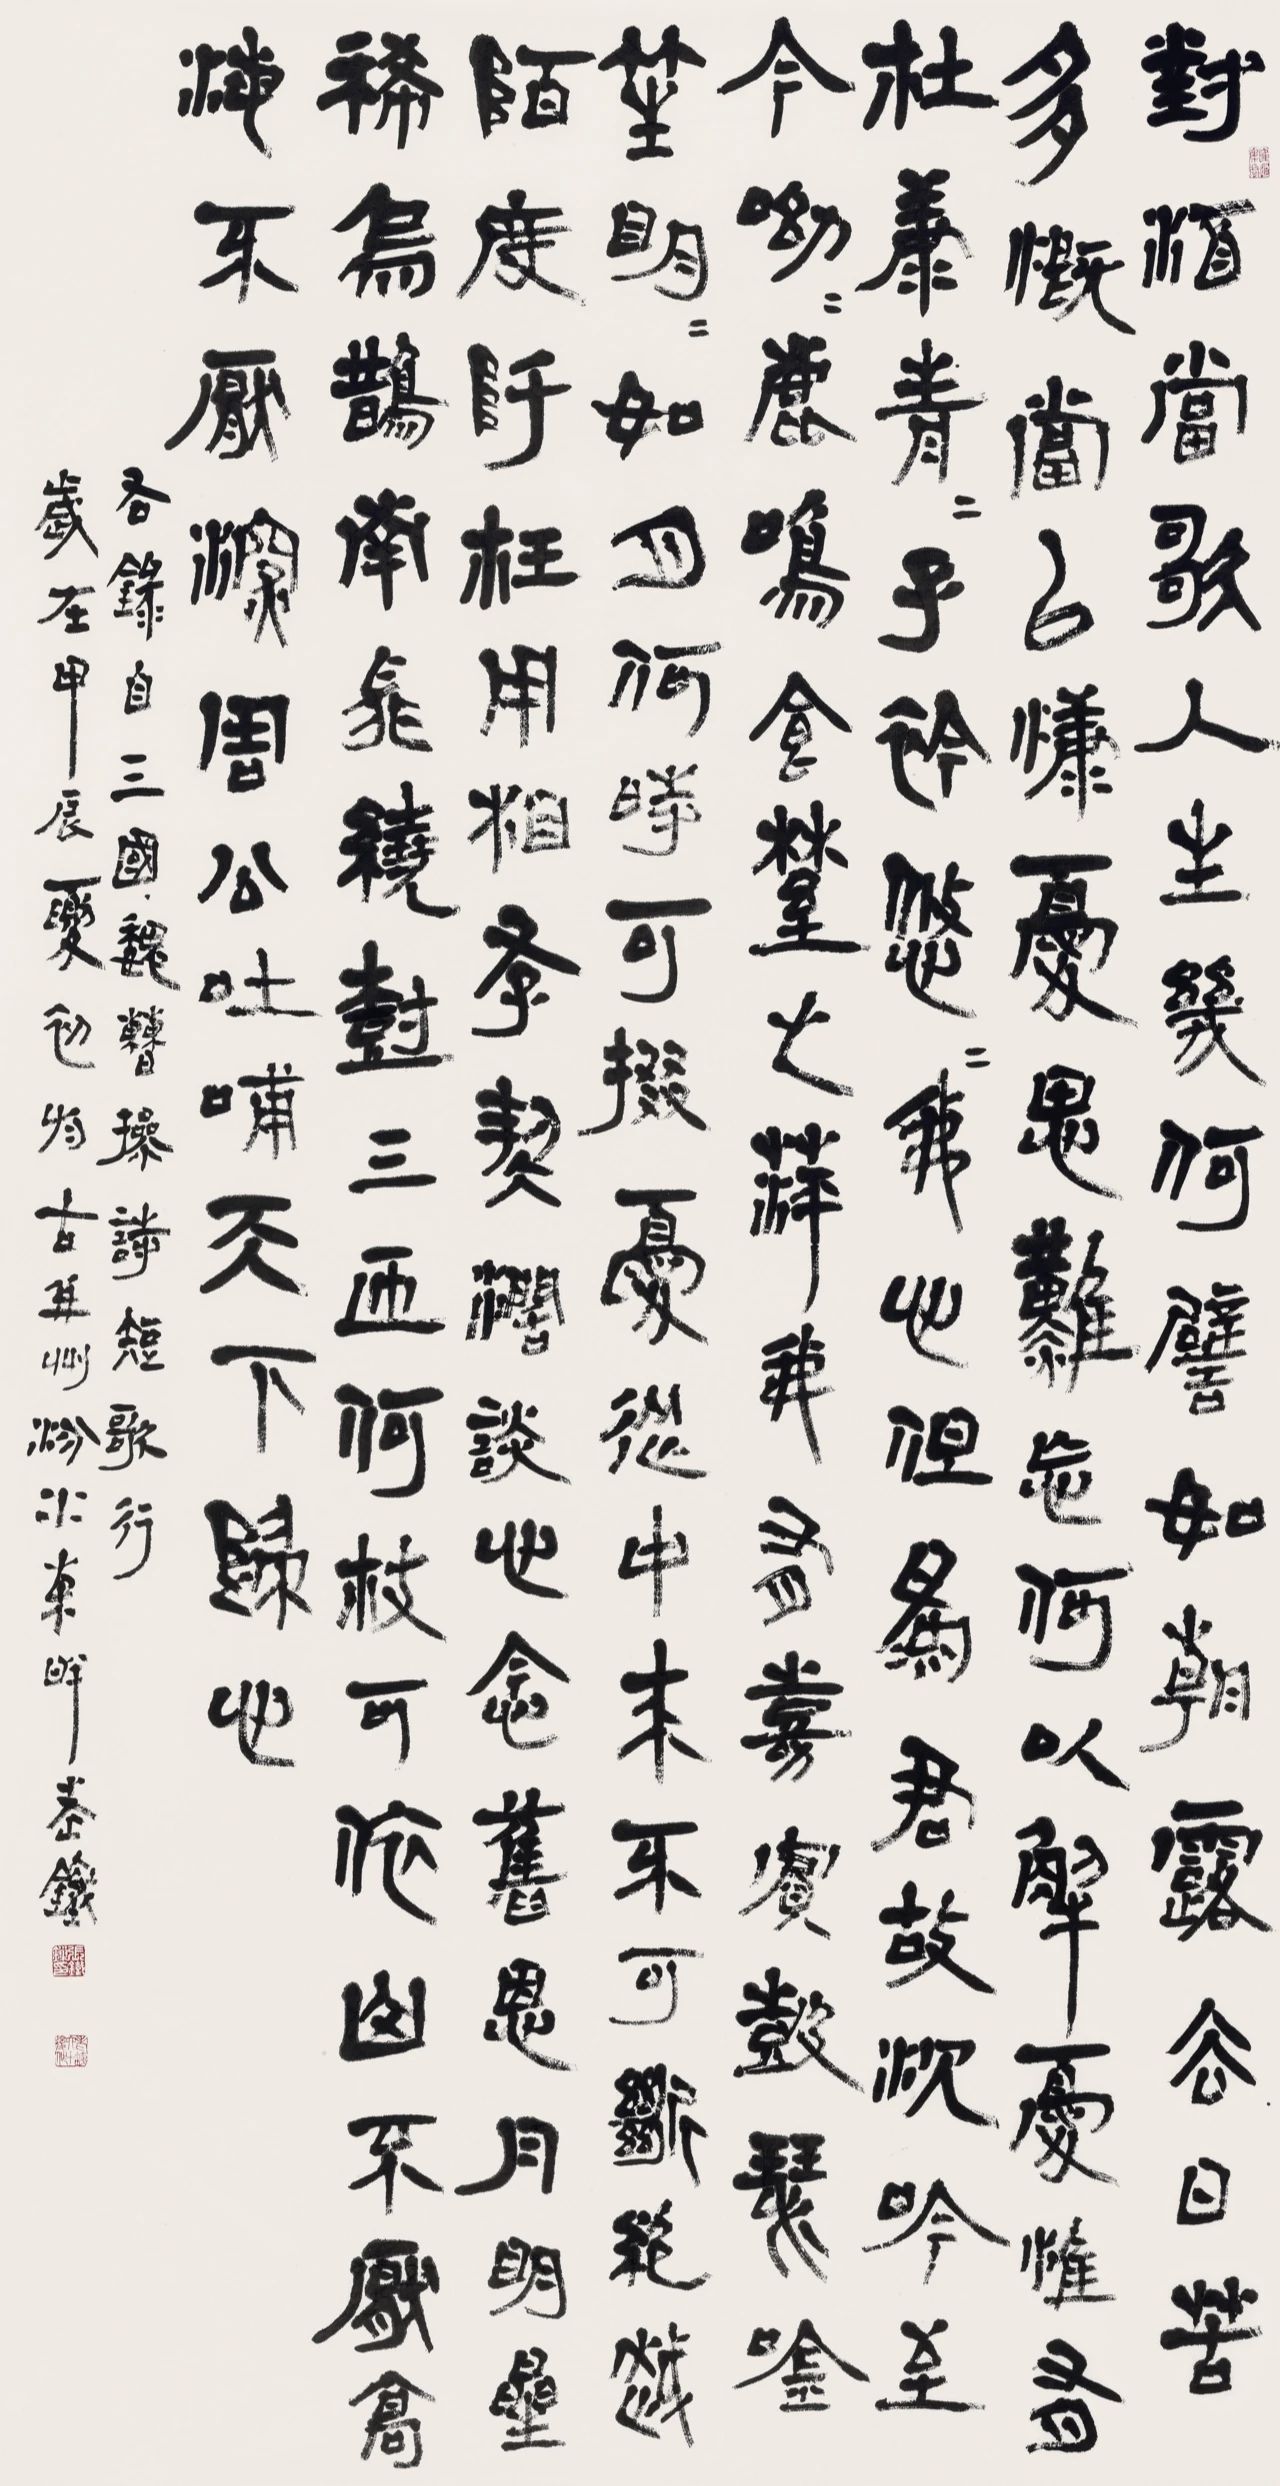 對酒當歌人生幾何譬如朝露去日苦
多慨當以慷憂思難忘何以解憂惟有
杜康青〻子衿悠〻我心但為君故沈吟至
今呦〻鹿鳴食埜之蓱我有嘉賓鼓瑟唫
笙明〻如月何時可掇憂從中來不可斷絕越
陌度阡枉用相存契闊談心念舊恩月明星
稀烏鵲南飛繞樹三匝何枝可依山不厭高
海不厭深周公吐哺天下歸心
右錄自三國魏曹操詩短歌行
歲在甲辰夏初於古并州汾水東畔鐵